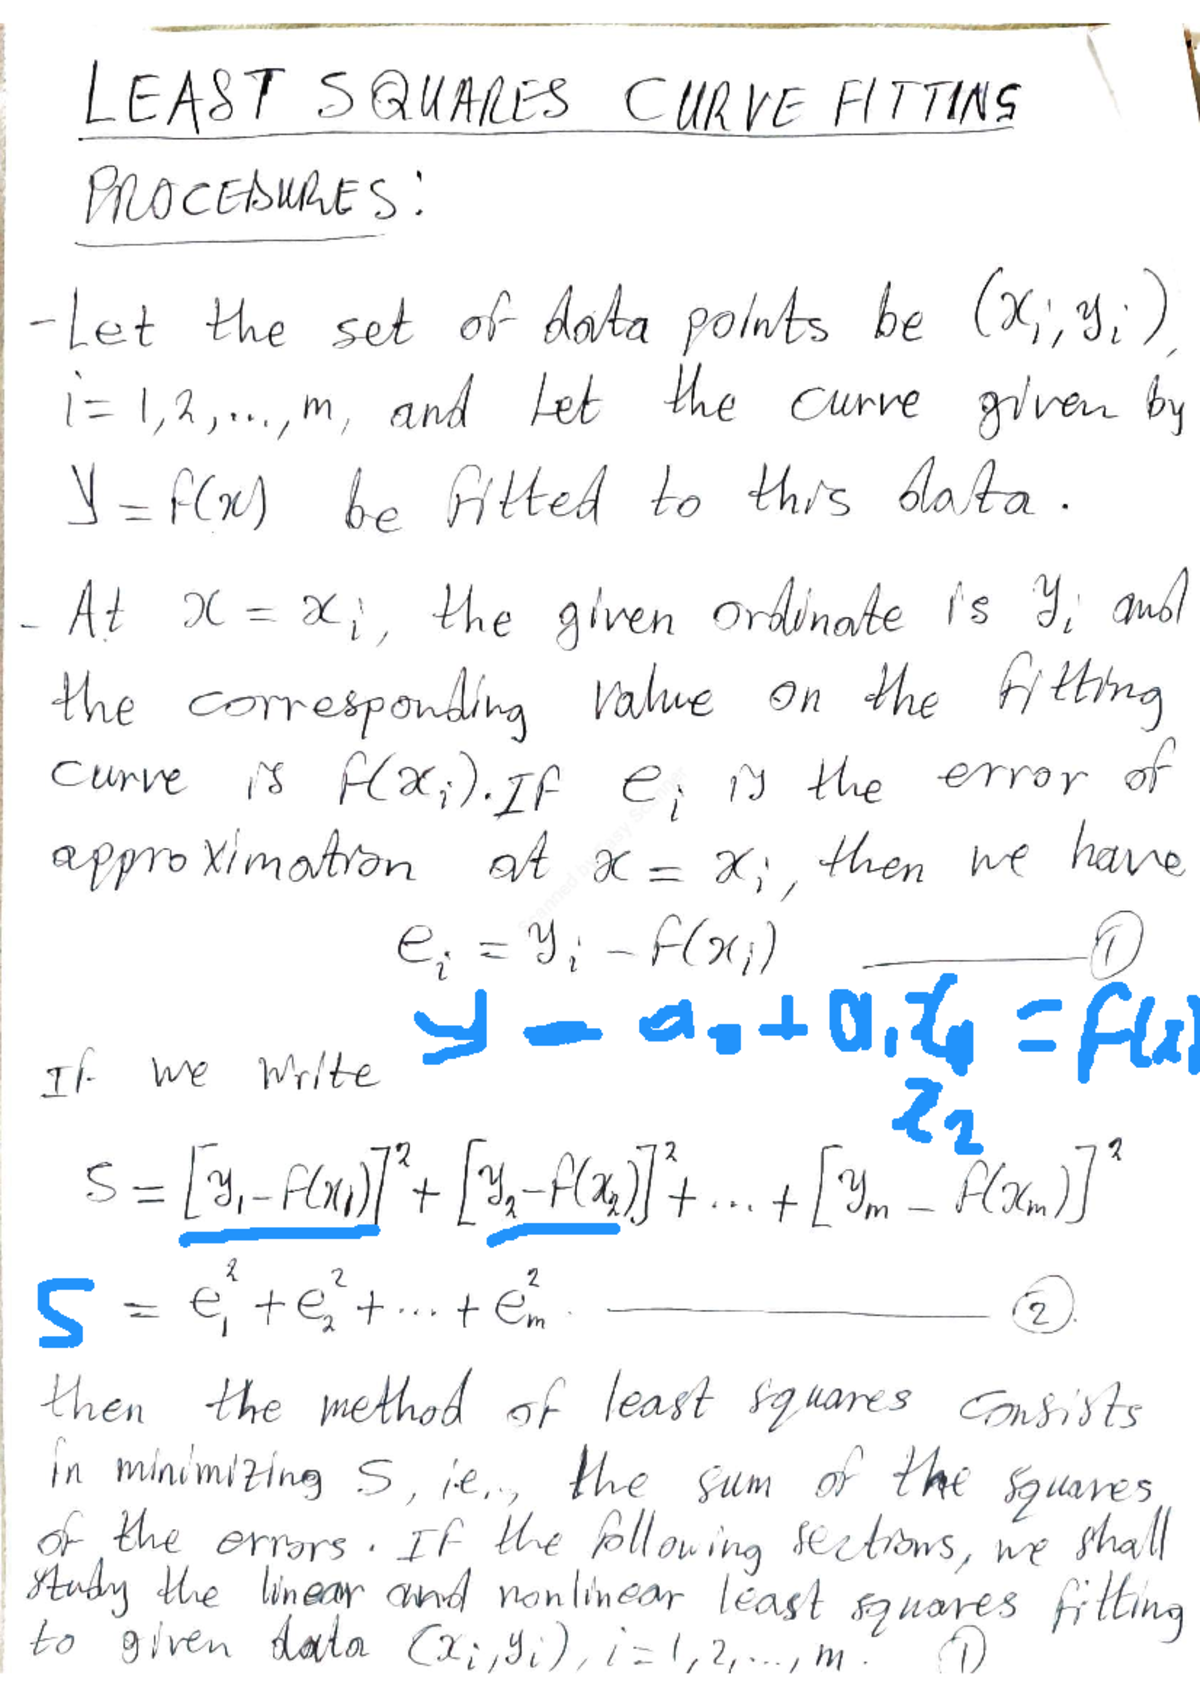 LEAST SQUARES CURVE FITTING
PROCEDURES:
- Let the set of data points be (xᵢ, yᵢ),
i = 1, 2, ..., m, and let the curve given by
y = f(x) be fitted to this data.
- At x = xᵢ, the given ordinate is yᵢ and
the corresponding value on the fitting
curve is f(xᵢ). If eᵢ is the error of
approximation at x = xᵢ, then we have
eᵢ = yᵢ - f(xᵢ) ——— ①
y - a₀ + a₁x₁ = f(x)
If we write
x₂
S = [y₁ - f(x₁)]² + [y₂ - f(x₂)]² + ... + [yₘ - f(xₘ)]²
S = e₁² + e₂² + ... + eₘ². ——— ②.
then the method of least squares consists
in minimizing S, i.e., the sum of the squares
of the errors. If the following sections, we shall
study the linear and nonlinear least squares fitting
to given data (xᵢ, yᵢ), i = 1, 2, ..., m. ①